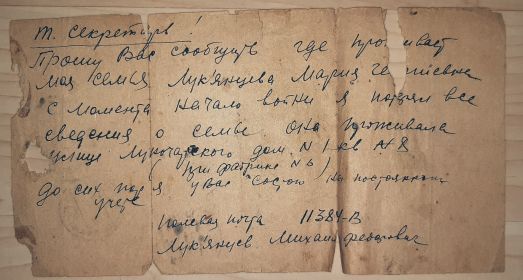 т. Секретарь!
Прошу Вас сообщить где проживает
моя семья Лук'янцева Мария
с момента начало войны я потерял все
сведения о семье. она проживала
улице Луначарского дом. N 1 кв N 8
(при фабрике N 6)
до сих пор я у Вас состою на постоянном
учете
полевая почта 11384-В
Лук'янцев Михаил Федорович